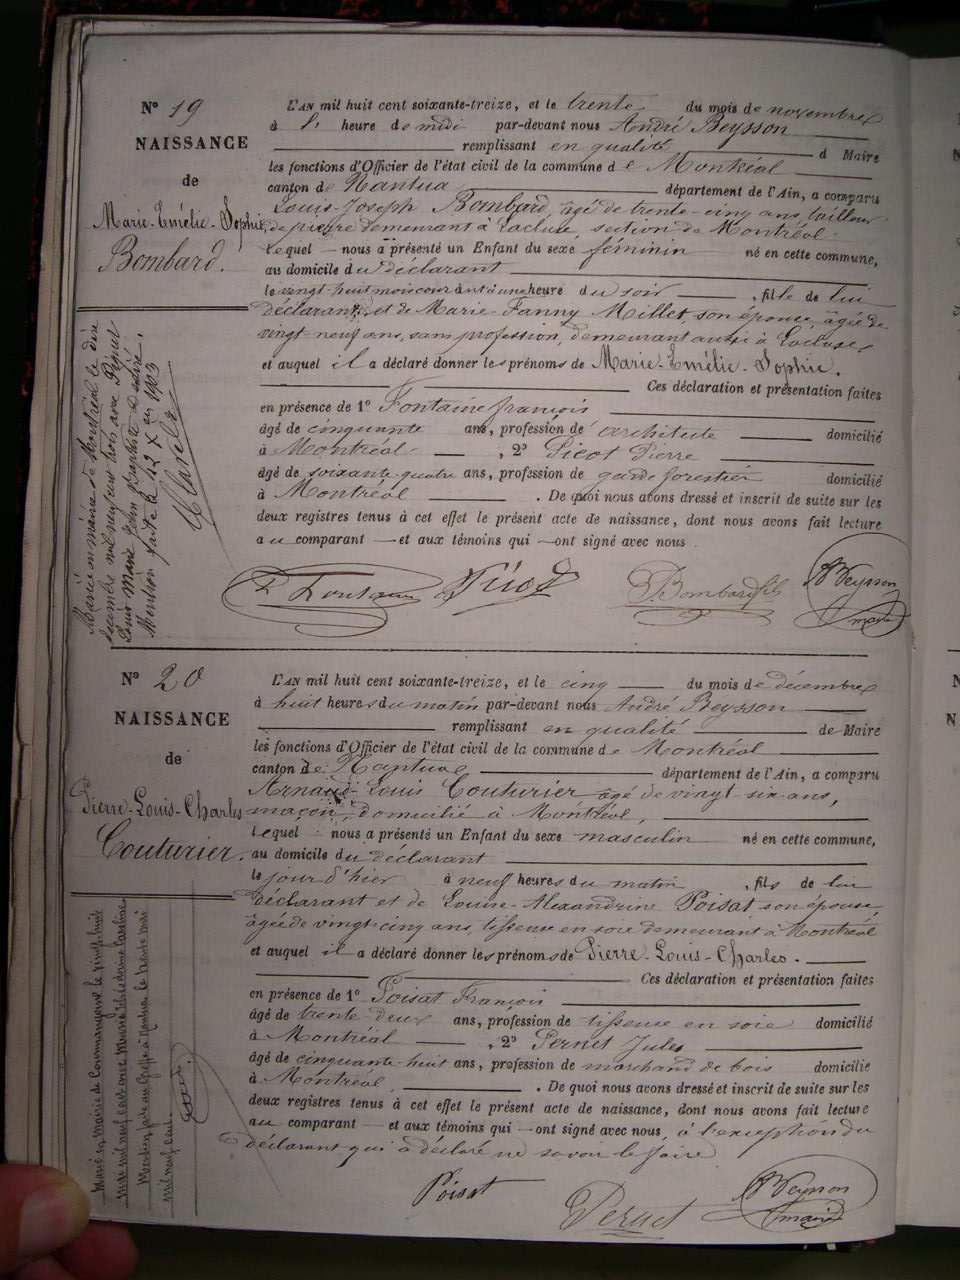 N° 19
NAISSANCE
de
Marie-Emélie-Sophie
Bombard.
L'AN mil huit cent soixante-treize, et le trente du mois de novembre
à l' heure de midi par-devant nous André Beysson
remplissant en qualité d Maire
les fonctions d'Officier de l'état civil de la commune de Montréal
canton de Nantua département de l'Ain, a comparu
Louis-Joseph Bombard, âgé de trente-cinq ans, tailleur
de pierre demeurant à Lacluse, section de Montréal.
Lequel nous a présenté un Enfant du sexe féminin né en cette commune,
au domicile du déclarant
le vingt-huit mois courant à une heure du soir, fille de lui
déclarant, et de Marie-Fanny Millet, son épouse, âgée de
vingt-neuf ans, sans profession, demeurant aussi à Lacluse
et auquel il a déclaré donner les prénoms de Marie-Emélie-Sophie.
Ces déclaration et présentation faites
en présence de 1° Fontaine françois
âgé de cinquante ans, profession de architecte domicilié
à Montréal, 2° Picot Pierre
âgé de soixante-quatre ans, profession de garde forestier domicilié
à Montréal. De quoi nous avons dressé et inscrit de suite sur les
deux registres tenus à cet effet le présent acte de naissance, dont nous avons fait lecture
au comparant et aux témoins qui ont signé avec nous.
Mariée en mairie de Montréal le dix
décembre mil neuf cent trois avec
Louis Marie John Baptiste
Mention faite le 12 X bre 1903
F Fontaine Picot Bombard fils A Beysson
maire
N° 20
NAISSANCE
de
Pierre-Louis-Charles
Couturier.
L'AN mil huit cent soixante-treize, et le cinq du mois de décembre
à huit heures du matin par-devant nous André Beysson
remplissant en qualité de Maire
les fonctions d'Officier de l'état civil de la commune de Montréal
canton de Nantua département de l'Ain, a comparu
Arnaud-Louis Couturier âgé de vingt-six ans,
maçon, domicilié à Montréal,
Lequel nous a présenté un Enfant du sexe masculin né en cette commune,
au domicile du déclarant
le jour d'hier à neuf heures du matin, fils de lui
déclarant et de Louise-Alexandrine Poisat son épouse,
âgée de vingt-cinq ans, tisseuse en soie demeurant à Montréal
et auquel il a déclaré donner les prénoms de Pierre-Louis-Charles.
Ces déclaration et présentation faites
en présence de 1° Poisat François
âgé de trente-deux ans, profession de tisseuse en soie domicilié
à Montréal, 2° Pernet Jules
âgé de cinquante-huit ans, profession de marchand de bois domicilié
à Montréal. De quoi nous avons dressé et inscrit de suite sur les
deux registres tenus à cet effet le présent acte de naissance, dont nous avons fait lecture
au comparant et aux témoins qui ont signé avec nous, à l'exception du
déclarant qui a déclaré ne savoir le faire
Marié en mairie de le vingt-huit
mai mil neuf cent avec
Mention faite au Greffe à Nantua le trente mai
mil neuf cent.
Poisat Pernet A Beysson
maire